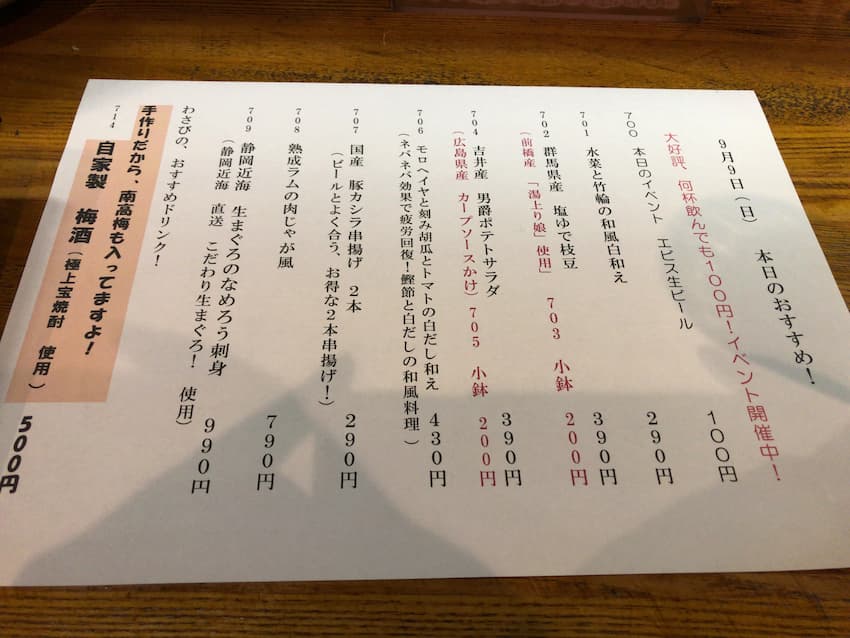 9月9日(日) 本日のおすすめ!
大好評、何杯飲んでも100円!イベント開催中!
700 本日のイベント エビス生ビール 100円
701 水菜と竹輪の和風白和え 290円
702 群馬県産 塩ゆで枝豆 390円
(前橋産 「湯上り娘」使用) 703 小鉢 200円
704 吉井産 男爵ポテトサラダ 390円
(広島県産 カープソースかけ) 705 小鉢 200円
706 モロヘイヤと刻み胡瓜とトマトの白だし和え 430円
(ネバネバ効果で疲労回復!鰹節と白だしの和風料理)
707 国産 豚カシラ串揚げ 2本 290円
(ビールとよく合う、お得な2本串揚げ!)
708 熟成ラムの肉じゃが風 790円
709 静岡近海 生まぐろのなめろう刺身 990円
(静岡近海 直送 こだわり生まぐろ! 使用)
わさびの、おすすめドリンク!
手作りだから、南高梅も入ってますよ!
714 自家製 梅酒(極上宝焼酎 使用) 500円